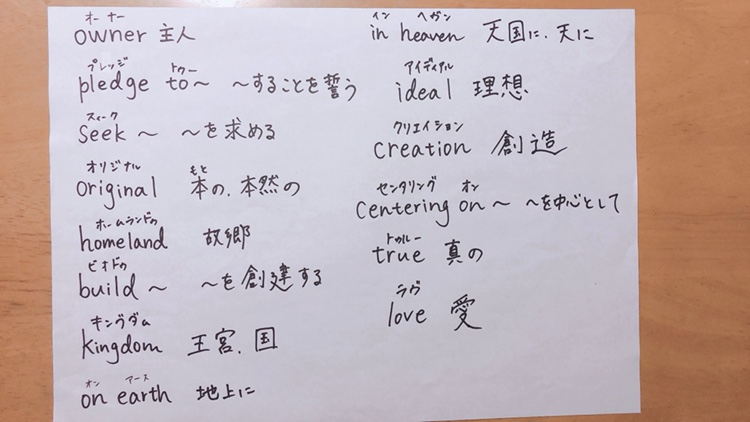 オーナー
owner 主人
プレッジ トゥー
pledge to～ ～することを誓う
スィーク
seek～ ～を求める
オリジナル もと
original 本の、本然の
ホームランドゥ
homeland 故郷
ビオドゥ
build～ ～を創建する
キングダム
kingdom 王宮、国
オン アース
on earth 地上に
イン ヘヴン
in heaven 天国に、天に
アイディアル
ideal 理想
クリエイション
creation 創造
センタリング オン
centering on～ ～を中心として
トゥルー
true 真の
ラヴ
love 愛